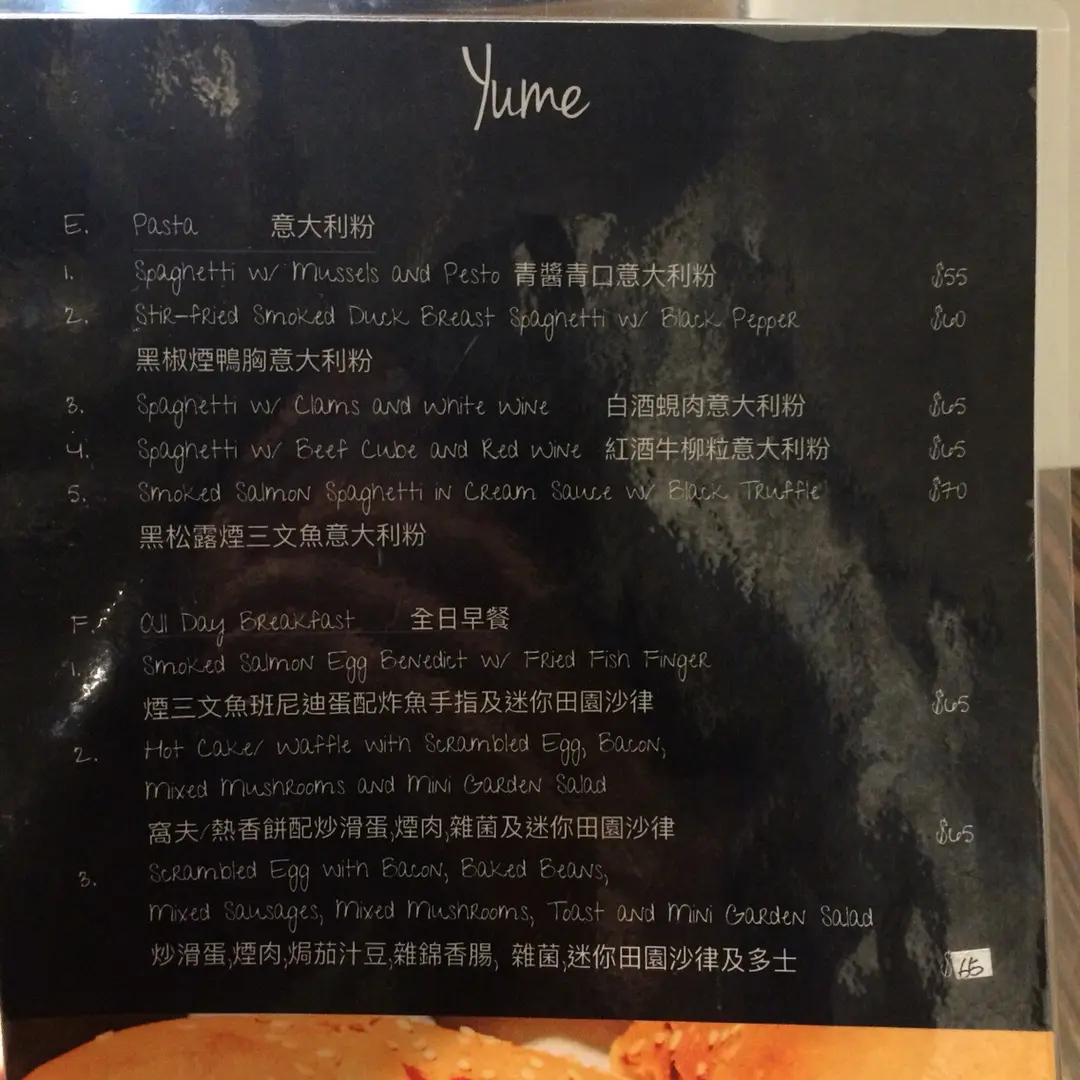 Yume
E. Pasta 意大利粉
1. Spaghetti w/ Mussels and Pesto 青醬青口意大利粉 $55
2. Stir-fried Smoked Duck Breast Spaghetti w/ Black Pepper $60
黑椒煙鴨胸意大利粉
3. Spaghetti w/ Clams and White Wine 白酒蜆肉意大利粉 $65
4. Spaghetti w/ Beef Cube and Red Wine 紅酒牛柳粒意大利粉 $65
5. Smoked Salmon Spaghetti in Cream Sauce w/ Black Truffle $70
黑松露煙三文魚意大利粉
F. All Day Breakfast 全日早餐
1. Smoked Salmon Egg Benedict w/ Fried Fish Finger
煙三文魚班尼迪蛋配炸魚手指及迷你田園沙律 $65
2. Hot Cake/ Waffle with Scrambled Egg, Bacon,
Mixed Mushrooms and Mini Garden Salad
窩夫/熱香餅配炒滑蛋,煙肉,雜菌及迷你田園沙律 $65
3. Scrambled Egg with Bacon, Baked Beans,
Mixed Sausages, Mixed Mushrooms, Toast and Mini Garden Salad
炒滑蛋,煙肉,焗茄汁豆,雜錦香腸, 雜菌,迷你田園沙律及多士 $65